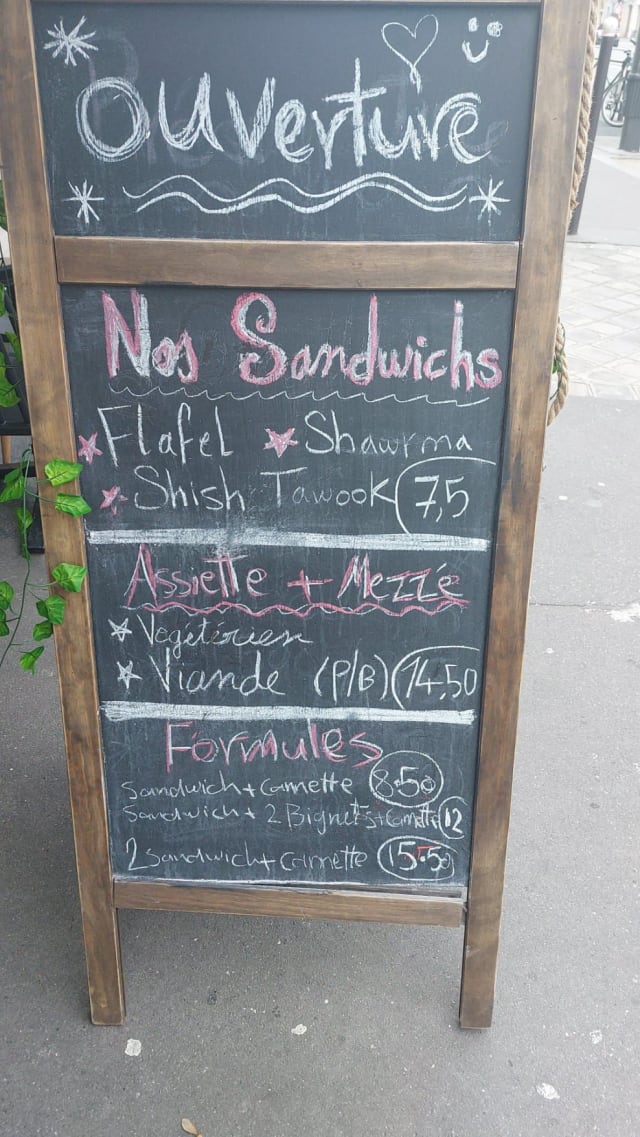 ouverture
Nos Sandwichs
Flafel Shawrma
Shish Tawook 7,5
Assiette + Mezzé
Vegetérien
Viande (P/B) 14,50
Formules
Sandwich + Camette 8.50
Sandwich + 2 Bignets + Camette 12
2 Sandwich + Camette 15.50